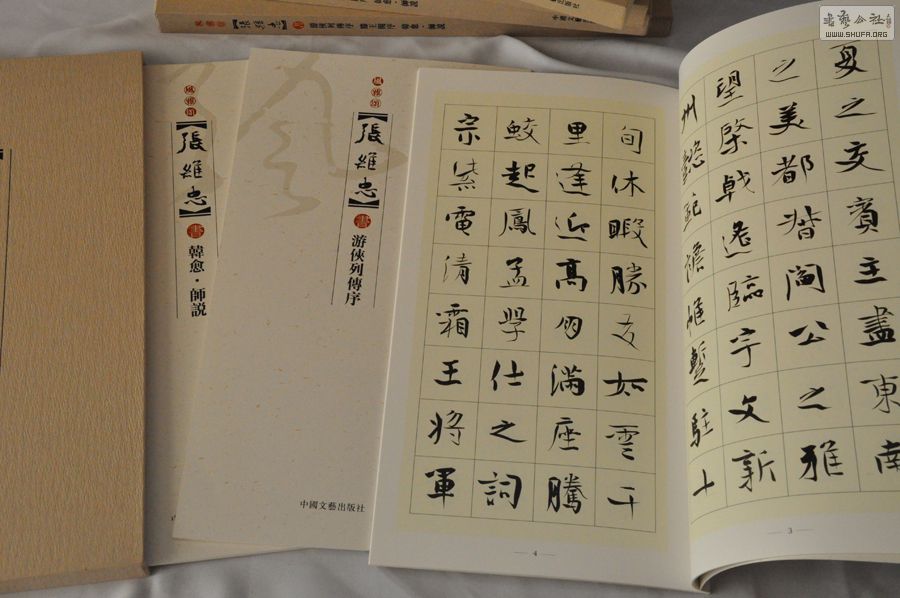 書藝公社
WWW.SHUFA.ORG
風雅頌
【張維忠】
書
游俠列傳序 滕王閣序 韓愈·師説
風雅頌
【張維忠】
書
韓愈·師説
【張維忠】
書
游俠列傳序
中國文藝出版社
夷之交賓主盡東南
之美都督閻公之雅
望棨戟遥臨宇文新
州懿範襜帷暫駐十
3
旬休暇勝友如雲千
里逢近高朋滿座騰
蛟起鳳孟學仕之詞
宗紫電清霜王將軍
4